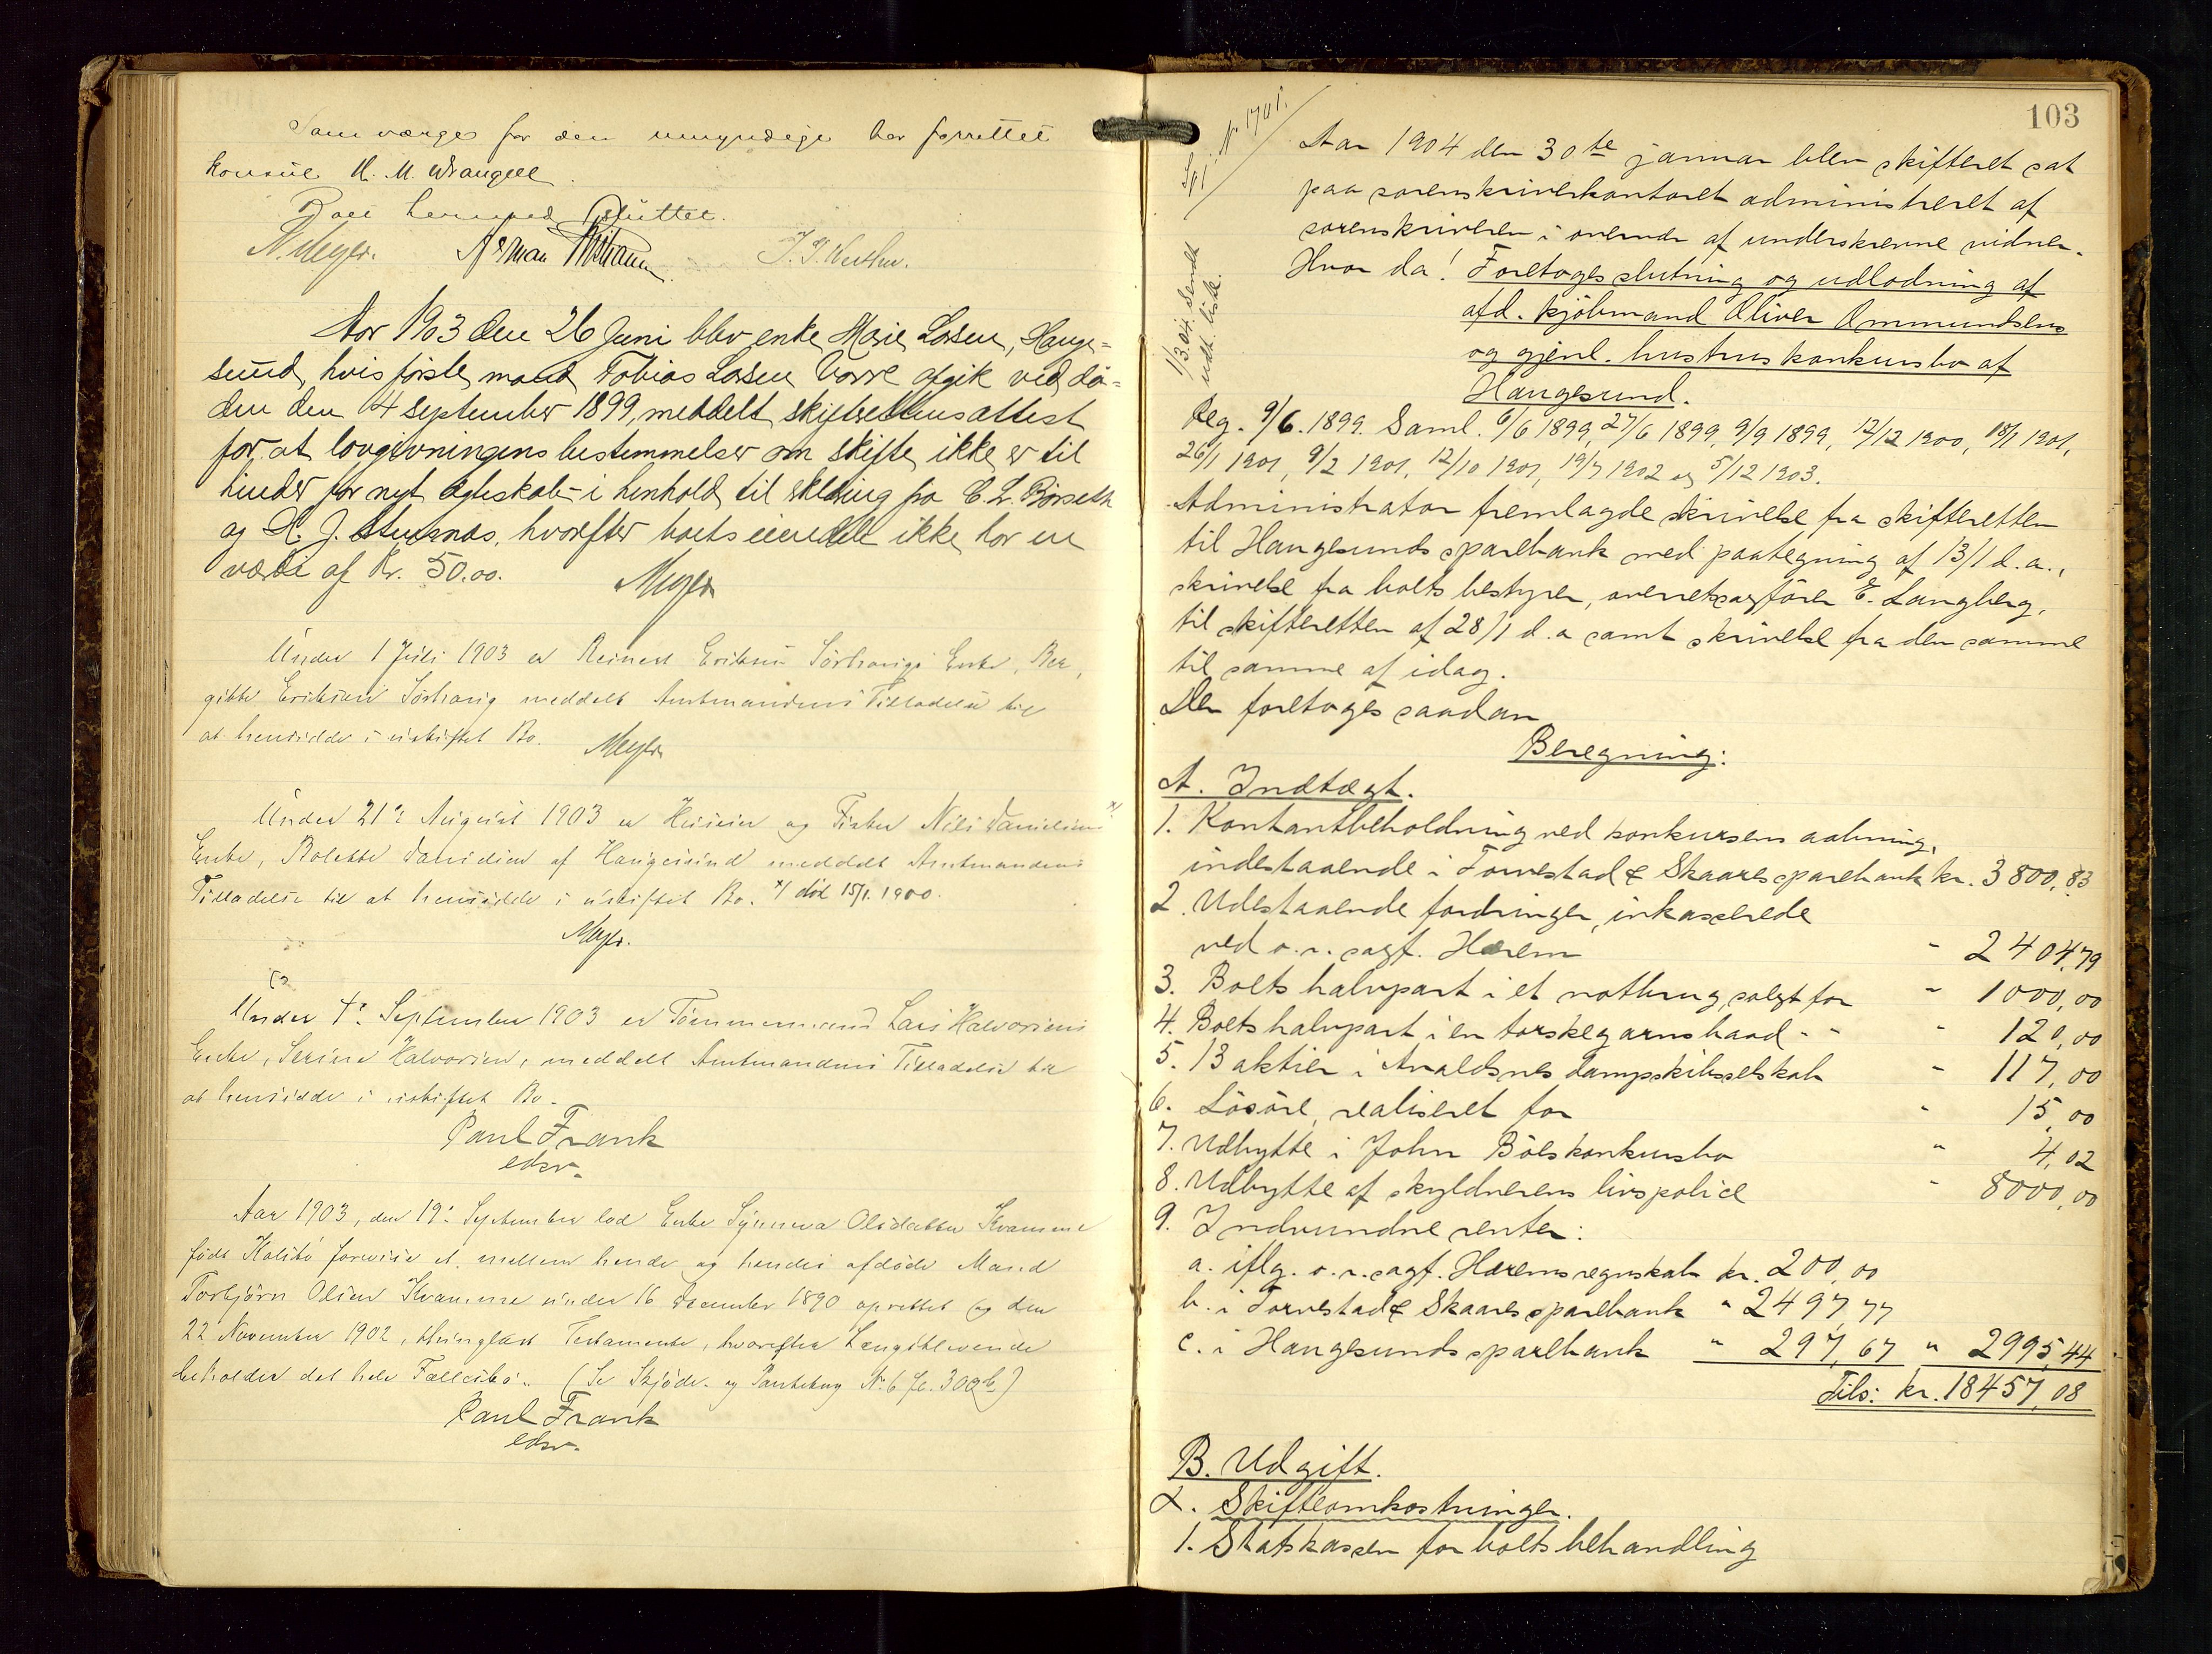 Som værge for den umyndige har forrettet
konsul H. M. Wrangell.
Boet hermed sluttet.
N. Meyer.
Aar 1903 den 26 Juni blev enke Marie Larsen, Hauge=
sund, hvis første mand Tobias Larsen Varre afgik ved dø=
den den 14 september 1899, meddelt skifterettens attest
for, at lovgivningens bestemmelser om skifte ikke er til
hinder for nyt ægteskab i henhold til erklæring fra C. L. Børseth
og J. Stensnæs, hvorefter boets eiendele ikke har en
værdi af Kr. 50.00.
Meyer
Under 1 Juli 1903 er Reinert Eriksen Sørhaugs Enke, Ber,
gitte Eriksen Sørhaug meddelt Amtmandens Tilladelse til
at hensidde i uskiftet Bo.
Meyer
Under 21de August 1903 er Huseier og Fisker Nils Danielsens x/
Enke, Bolette Danielsen af Haugesund meddelt Amtmandens
Tilladelse til at hensidde i uskiftet Bo. x/ död 15/1. 1900.
Meyer.
Under 4de September 1903 er Tømmermand Lars Halvorsens
Enke, Serine Halvorsen, meddelt Amtmandens Tilladelse til
at hensidde i uskiftet Bo.
Paul Frank
edsv.
Aar 1903, den 19de September lod Enke Synneva Olsdatter Kvamme
født Kalstø forevise et mellem hende og hendes afdøde Mand
Torbjørn Olsen Kvamme under 16 December 1890 oprettet og den
22 November 1902, thinglæst Testamente, hvorefter Længstlevende
beholder det hele Fællesbo. (Se Skjøde- og Pantebog No. 6 fl. 300b)
Paul Frank
edsv.
103
Spj. No 1701.
1/3.04. sendt
udt. liste.
Aar 1904 den 30te januar blev skifteret sat
paa sorenskriverkontoret administreret af
sorenskriveren i overvær af underskrevne vidner.
Hvor da! Foretoges slutning og udlodning af
afd. kjøbmand Oliver Ommundsens
og gjenl. hustrus konkursbo af
Haugesund.
Reg. 9/6. 1899. Saml. 6/6 1899, 27/6 1899, 9/9 1899, 12/12 1900, 18/1 1901,
26/1 1901, 9/2 1901, 12/10 1901, 19/7 1902 og 5/12 1903.
Administrator fremlagde skrivelse fra skifteretten
til Haugesunds sparebank med paategning af 13/1 d.a.,
skrivelse fra boets bestyrer, overretssagfører E. Langberg,
til skifteretten af 28/1 d.a samt skrivelse fra den samme
til samme af idag.
Der foretoges saadan
Beregning:
A. Indtægt.
1. Kontantbeholdning ved konkursens aabning,
indestaaende i Torvestad & Skaare sparebank kr. 3800,83
2. Udestaaende fordringer, inkasserede
ved o.r.sagf. Hærem " 2404,79
3. Boets halvpart i et notbrug, solgt for " 1000,00
4. Boets halvpart i en torskegarnsbaad - - " 120,00
5. 13 aktier i Avaldsnes dampskibsselskab " 117,00
6. Løsøre, realiseret for " 15,00
7. Udbytte i John Bøes konkursbo " 4,02
8. Udbytte af skyldnerens livspolice " 8000,00
9. Indvundne renter:
a. iflg. o.r.sagf. Hærems regnskab kr. 200,00
b. i Torvestad & Skaares sparebank " 2497,77
c. i Haugesunds sparebank " 297,67 " 2995,44
Tils: kr. 18457,08
B. Udgift.
α. Skifteomkostninger.
1. Statskassen for boets behandling